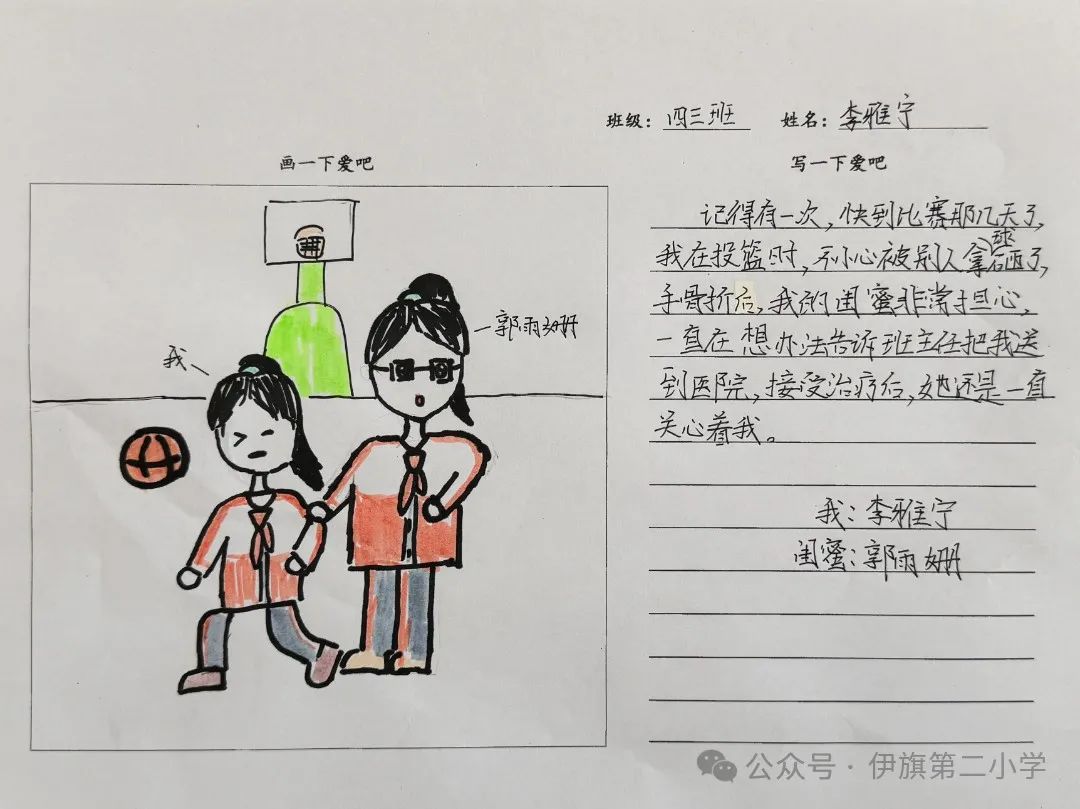 班级：四三班 姓名：李雅宁
画一下爱吧
写一下爱吧
我
郭雨姗
记得有一次，快到比赛那几天了，
我在投篮时，不小心被别人拿球砸了，
手骨折后，我的闺蜜非常担心，
一直在想办法告诉班主任把我送
到医院，接受治疗后，她还是一直
关心着我。
我：李雅宁
闺蜜：郭雨姗
公众号·伊旗第二小学